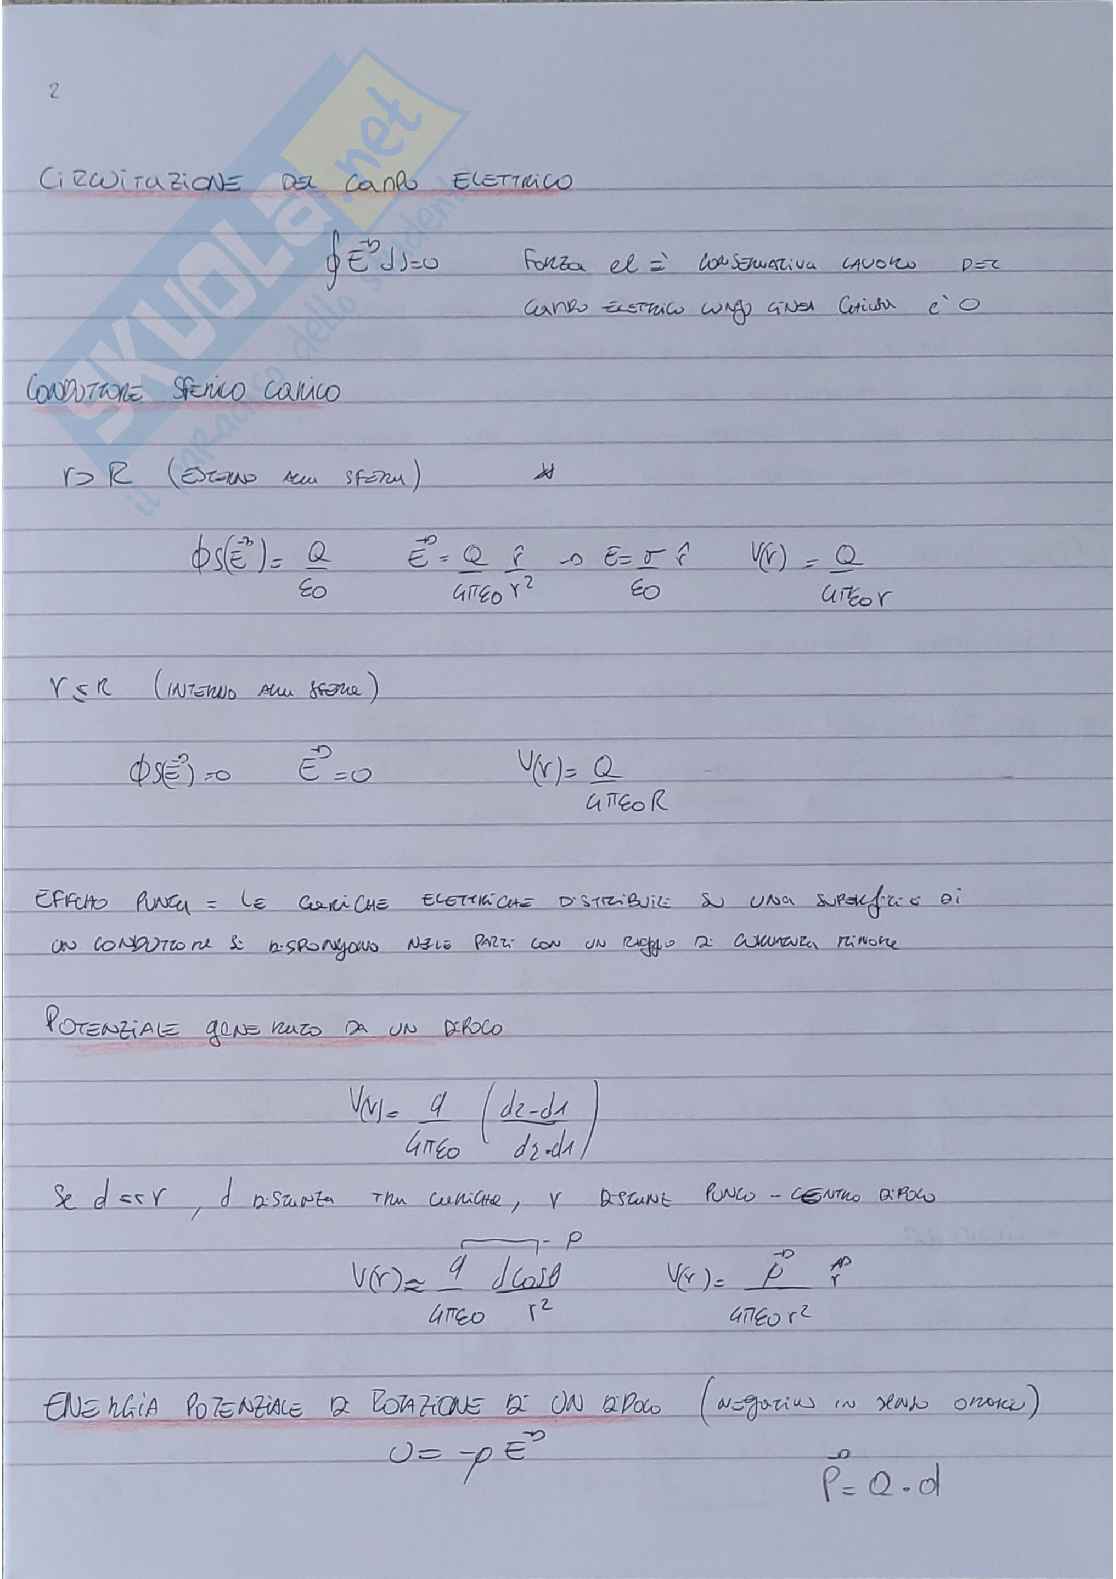 2
SKUOLA.net
CIRCUITAZIONE DEL CAMPO ELETTRICO
∮E⃗ dS=0 FORZA el È CONSERVATIVA LAVORO DEL
CAMPO ELETTRICO LUNGO LINEA CHIUSA è 0
CONDUTTORE SFERICO CARICO
r>R (ESTERNO ALLA SFERA)
ΦS(E⃗)= Q/ε0 E⃗ = Q/4πε0 r̂/r² → E= σ/ε0 r̂ V(r) = Q/4πε0r
r≤R (INTERNO ALLA SFERA)
ΦS(E⃗)=0 E⃗=0 V(r)= Q/4πε0R
EFFETTO PUNTA = LE CARICHE ELETTRICHE DISTRIBUITE SU UNA SUPERFICIE DI
UN CONDUTTORE SI DISPONGONO NELLE PARTI CON UN RAGGIO DI CURVATURA MINORE
POTENZIALE GENERATO DA UN DIPOLO
V(r)= q/4πε0 (d2-d1/d2·d1)
Se d<<r, d DISTANZA TRA CARICHE, r DISTANZE PUNTO - CENTRO DIPOLO
- p
V(r)≈ q/4πε0 dcosθ/r² V(r)= p⃗/4πε0r² r̂
ENERGIA POTENZIALE DI ROTAZIONE DI UN DIPOLO (negativa in senso orario)
U= -p E⃗
P⃗= Q·d